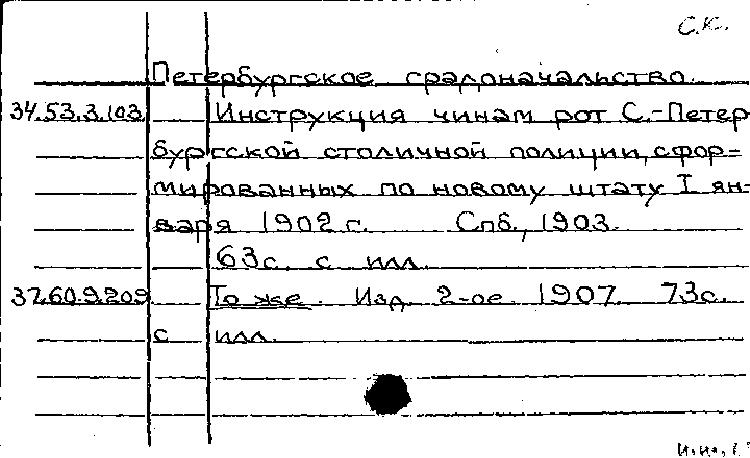 С.К.
Петербургское градоначальство.
34.53.3.103 Инструкция чинам рот С.-Петер
бургской столичной полиции, сфор=
мированных по новому штату I ян-
варя 1902 г. Спб., 1903.
63с. с илл.
37.60.9.209 То же. Изд. 2-ое. 1907. 73с.
с илл.